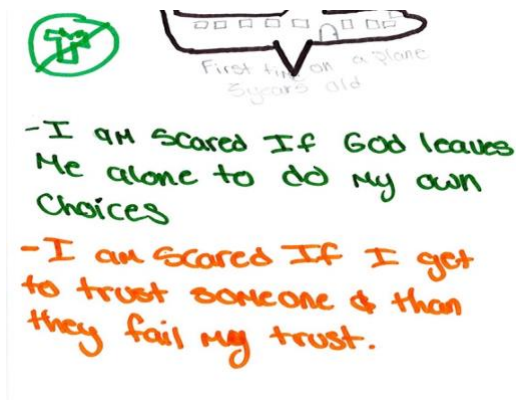 First time on a plane
5 years old
-I am scared If God leaves
Me alone to do my own
Choices
-I am scared If I get
to trust someone & than
they fail my trust.